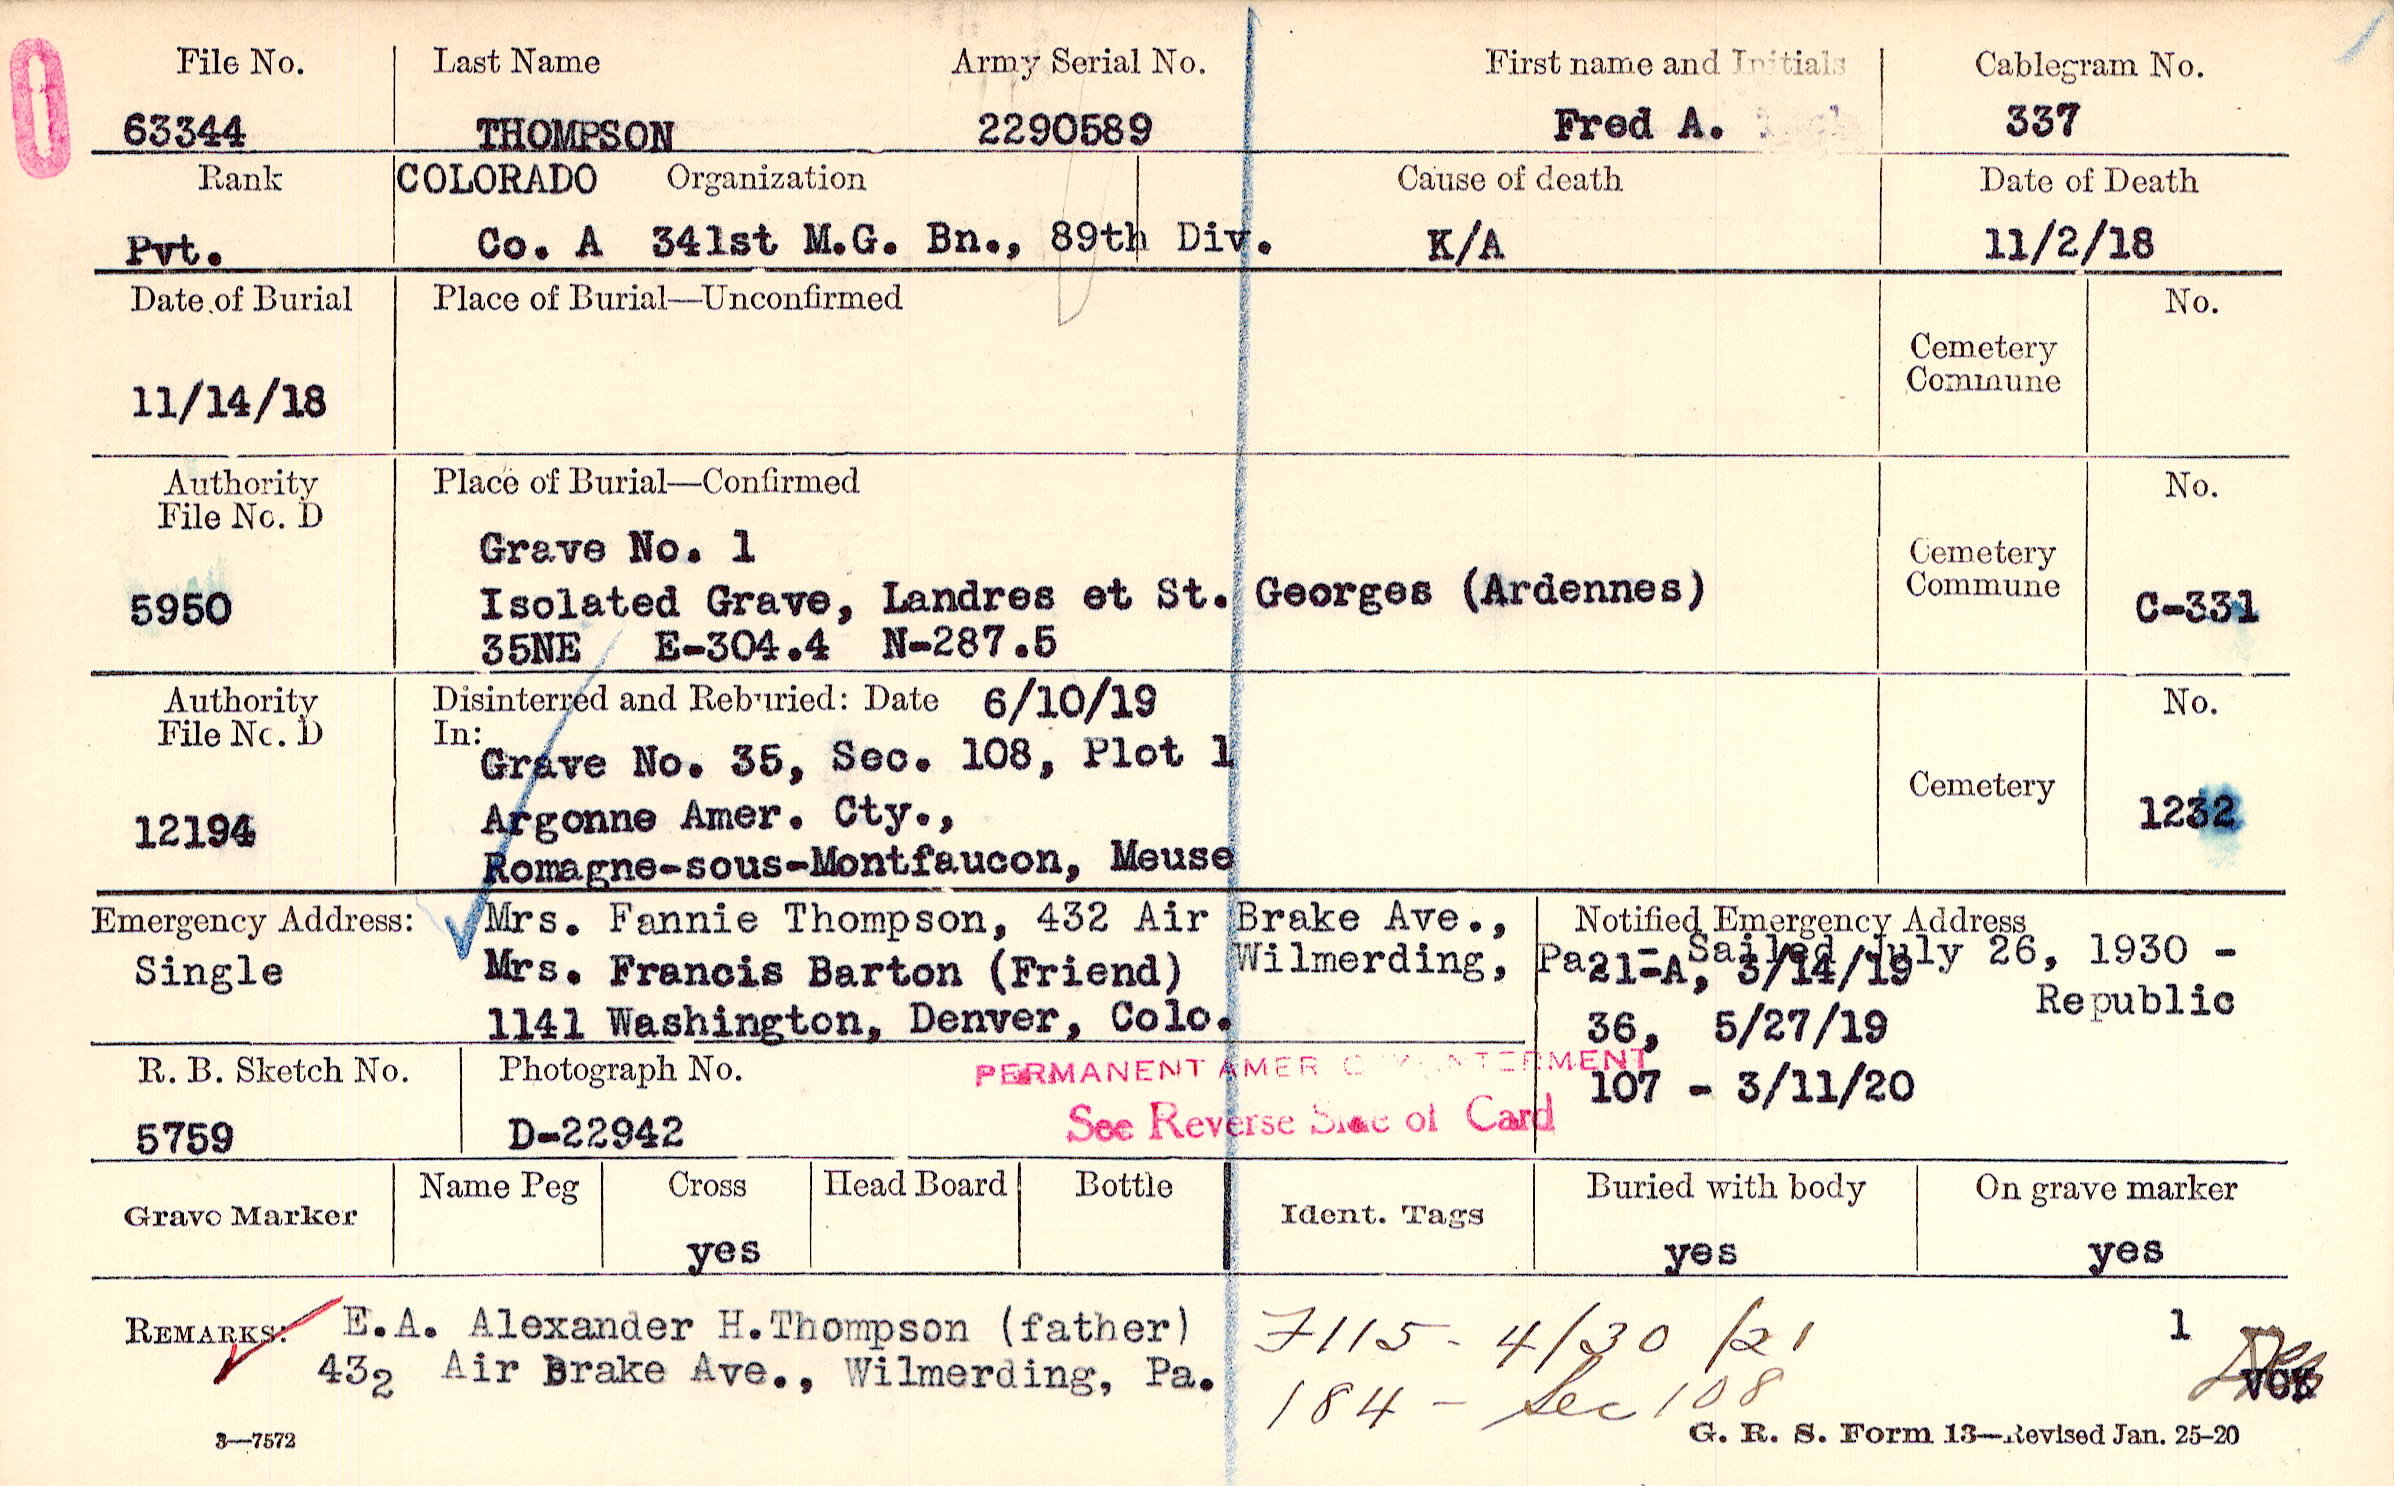 File No. Last Name Army Serial No. First name and Initials Cablegram No.
63344 THOMPSON 2290589 Fred A. 337
Rank COLORADO Organization Cause of death Date of Death
Pvt. Co. A 341st M.G. Bn., 89th Div. K/A 11/2/18
Date of Burial Place of Burial—Unconfirmed No.
Cemetery
Commune
11/14/18
Authority Place of Burial—Confirmed No.
File No. D
Grave No. 1
Cemetery
Commune
5950 Isolated Grave, Landres et St. Georges (Ardennes) C-331
35NE E-304.4 N-287.5
Authority Disinterred and Reburied: Date 6/10/19 No.
File No. D In:
Grave No. 35, Sec. 108, Plot 1
Cemetery
12194 Argonne Amer. Cty., 1232
Romagne-sous-Montfaucon, Meuse
Emergency Address: Mrs. Fannie Thompson, 432 Air Brake Ave., Notified Emergency Address
Wilmerding, Pa. - Sailed July 26, 1930 -
Republic
Single Mrs. Francis Barton (Friend) 21-A, 3/14/19
1141 Washington, Denver, Colo. 36, 5/27/19
107 - 3/11/20
R. B. Sketch No. Photograph No. PERMANENT AMER INTERMENT
5759 D-22942 See Reverse Side of Card
Grave Marker Name Peg Cross Head Board Bottle Ident. Tags Buried with body On grave marker
yes yes yes
REMARKS: E.A. Alexander H.Thompson (father) 7115 - 4/30/21 1
432 Air Brake Ave., Wilmerding, Pa. 184 - Sec 108
3—7572 G. R. S. Form 13—Revised Jan. 25-20